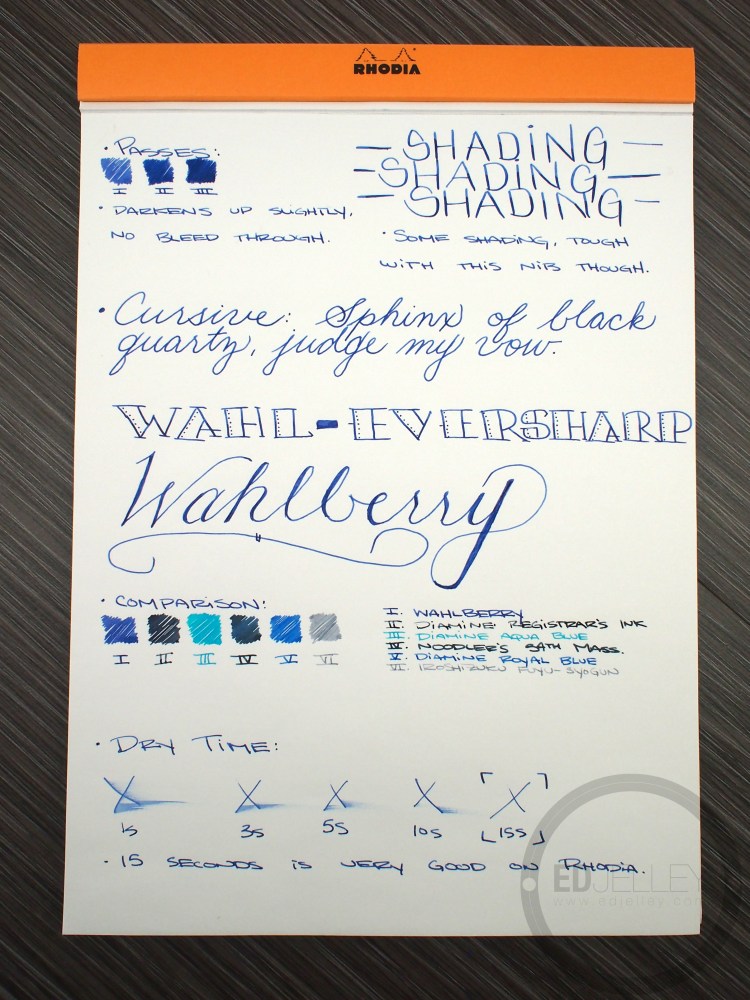 RHODIA
• PASSES:
I II III
• DARKENS UP SLIGHTLY,
NO BLEED THROUGH.
— SHADING —
— SHADING —
— SHADING —
• SOME SHADING, TOUGH
WITH THIS NIB THOUGH.
• Cursive: Sphinx of black
quartz, judge my vow.
WAHL-EVERSHARP
Wahlberry
• COMPARISON:
I II III IV V VI
I. WAHLBERRY
II. DIAMINE REGISTRAR'S INK
III. DIAMINE AQUA BLUE
IV. NOODLER'S 54TH MASS.
V. DIAMINE ROYAL BLUE
VI. IROSHIZUKU FUYU-SYOGUN
• DRY TIME:
X X X X X
1s 3s 5s 10s 15s
• 15 SECONDS IS VERY GOOD ON RHODIA.
EDJELLEY
www.edjelley.com